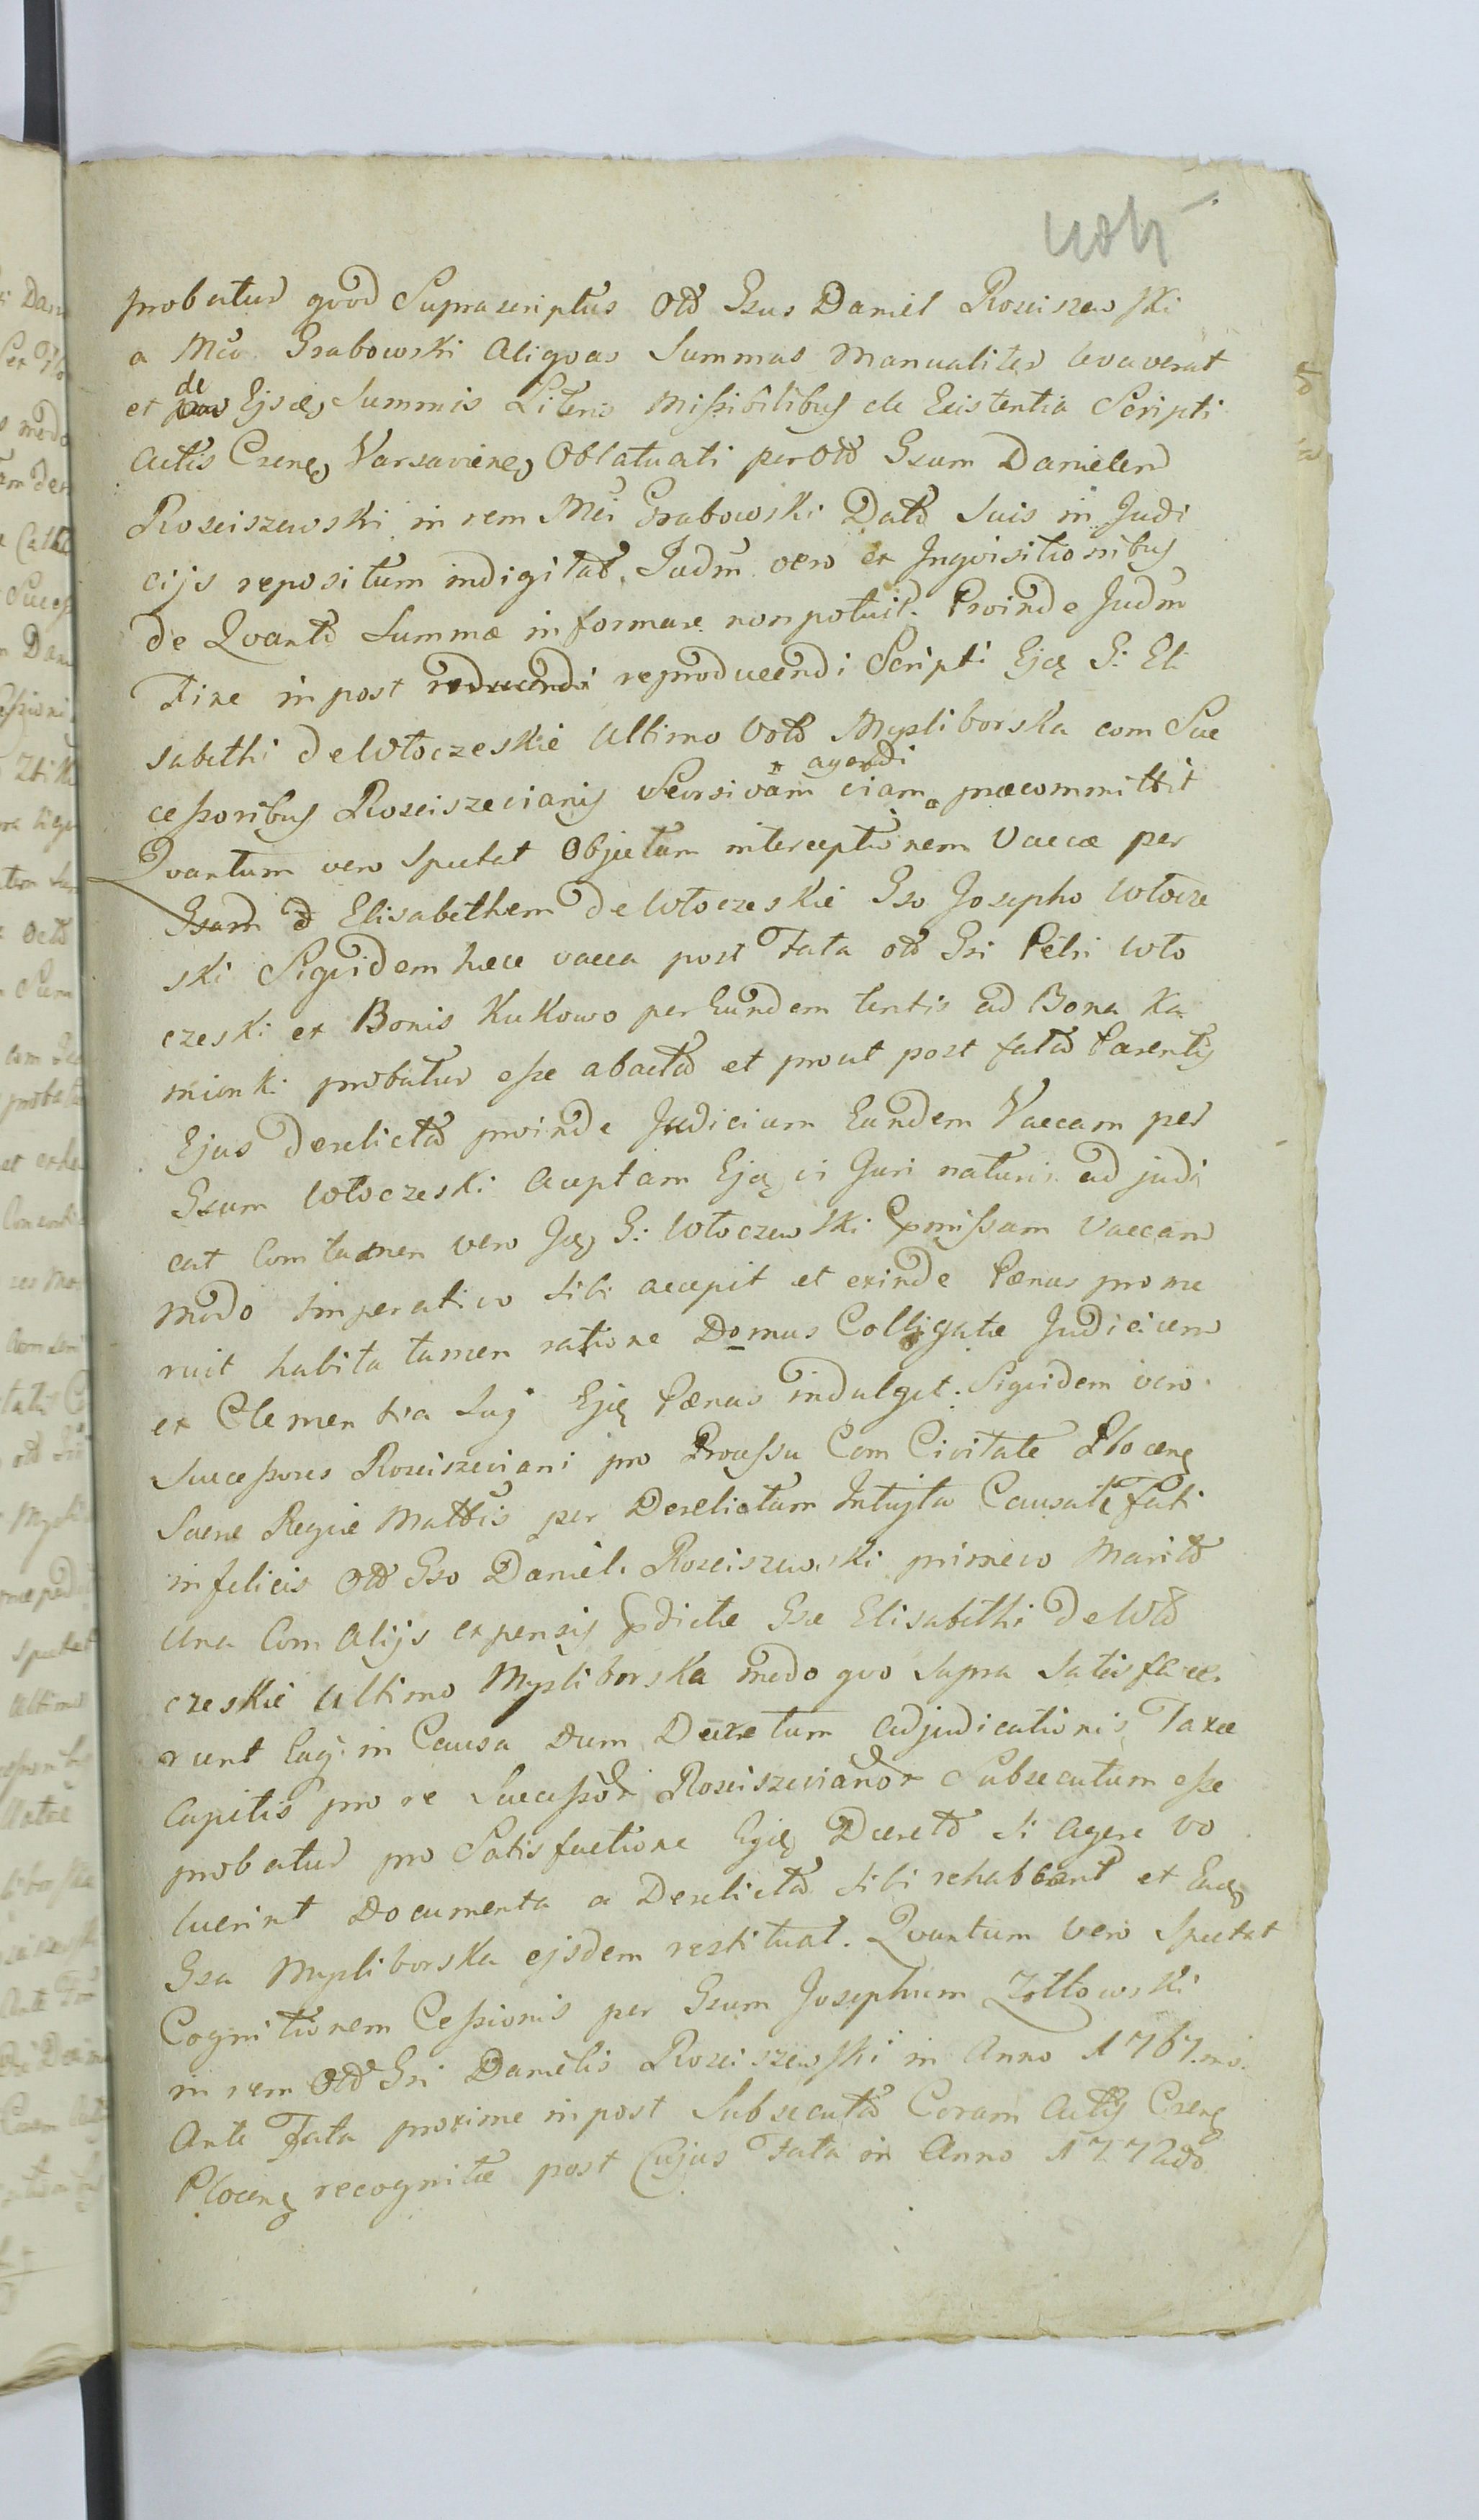 probatur qvod Suprascriptus Olt Gsus Daniel Rosciszewski
a Mco Grabowski aliqvas Summas manualiter levaverat
et de Ejsdeq Summis Literis Missibilibus de Existentia Scripti
Actis Crens Varsaviens Oblatuati per Olt Gsum Danielem
Rosciszewski in rem Mci Grabowski Dato Suis in Judi
cijs repositum indigitat. Judm vero ex Inqvisitionibus
de Qvanto Summæ informare non potuit. Proinde Judm
Fine in post reproducendi Scripti Ejdq G: El
sabethi de Wtoczeskie Ultimo Voto Mysliborska com Suc
cessoribus Rosciszevianis Seorsivam viam agendi præcommittit
Qvantum vero Spectat Objectam interceptionem Vaccæ per
Gsam Elisabethem de Wtoczeskie Gso Josepho Wtocze
ski Siqvidem hæc vacca post Fata olt Gsi Petri Wto
czeski ex Bonis Kukowo per Eundem tentis ad Bona Ka
mionki probatur esse abacta et prout post fata Parentis
Ejus derelicta proinde Judicium Eandem Vaccam per
Gsum Wtoczeski acceptam Ejdq vi Juri naturis adjudi
cat Com tamen vero Jdq G: Wtoczewski Præmissam Vaccam
modo imperativo Sibi accepit et exinde Pænas prome
ruit habita tamen ratione Domus Colligatæ Judicium
ex Clementia Sua Ejdq Pænas indulget. Siqvidem vero
Successores Rosciszeviani pro Processu Com Civitate Plocens
Sacræ Regiæ Mattis per Derelictam Intuitu Causatæ Fati
infelicis Olt Gso Daniel. Rosciszewski primevo Marito
Una Com alijs expensis prædictæ Gsæ Elisabethi de Wto
czeskie Ultimo Mysliborska modo qvo Supra Satisfece
runt Eaq in Causa dum Decretum adjudicationis Taxæ
Capitis pro re Successor Rosciszevianor Subsecutum esse
probatur pro Satisfactione Ejdq Decreto Si agere vo
luerint Documenta a Derelicta Sibi rehabeant et Eadq
Gsa Mysliborska ejsdem restituat. Qvantum vero Spectat
Cognitionem Cessionis per Gsum Josephum Zołtowski
in rem Olt Gsi Danielis Rosciszewski in Anno 1767.mo.
Ante Fata proxime in post Subsecuta Coram Actis Crens
Plocens recognitæ post Cujus Fata in Anno 1772do